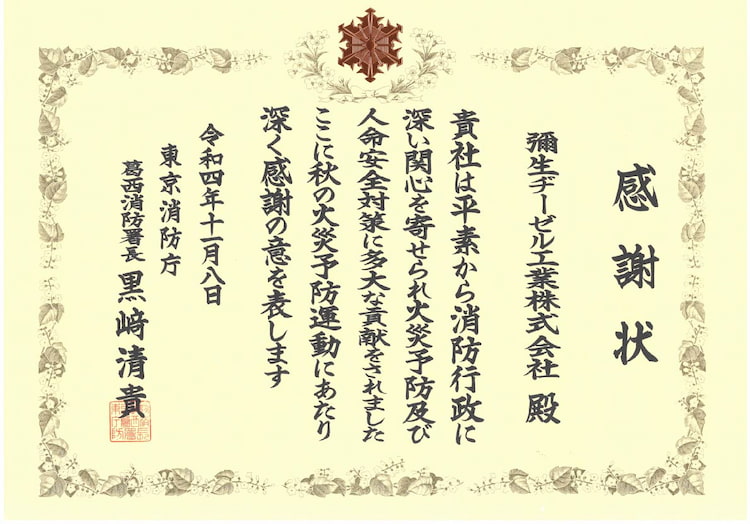 感謝状
彌生ヂーゼル工業株式会社 殿
貴社は平素から消防行政に
深い関心を寄せられ火災予防及び
人命安全対策に多大な貢献をされました
ここに秋の火災予防運動にあたり
深く感謝の意を表します
令和四年十一月八日
東京消防庁
葛西消防署長 黒﨑清貴